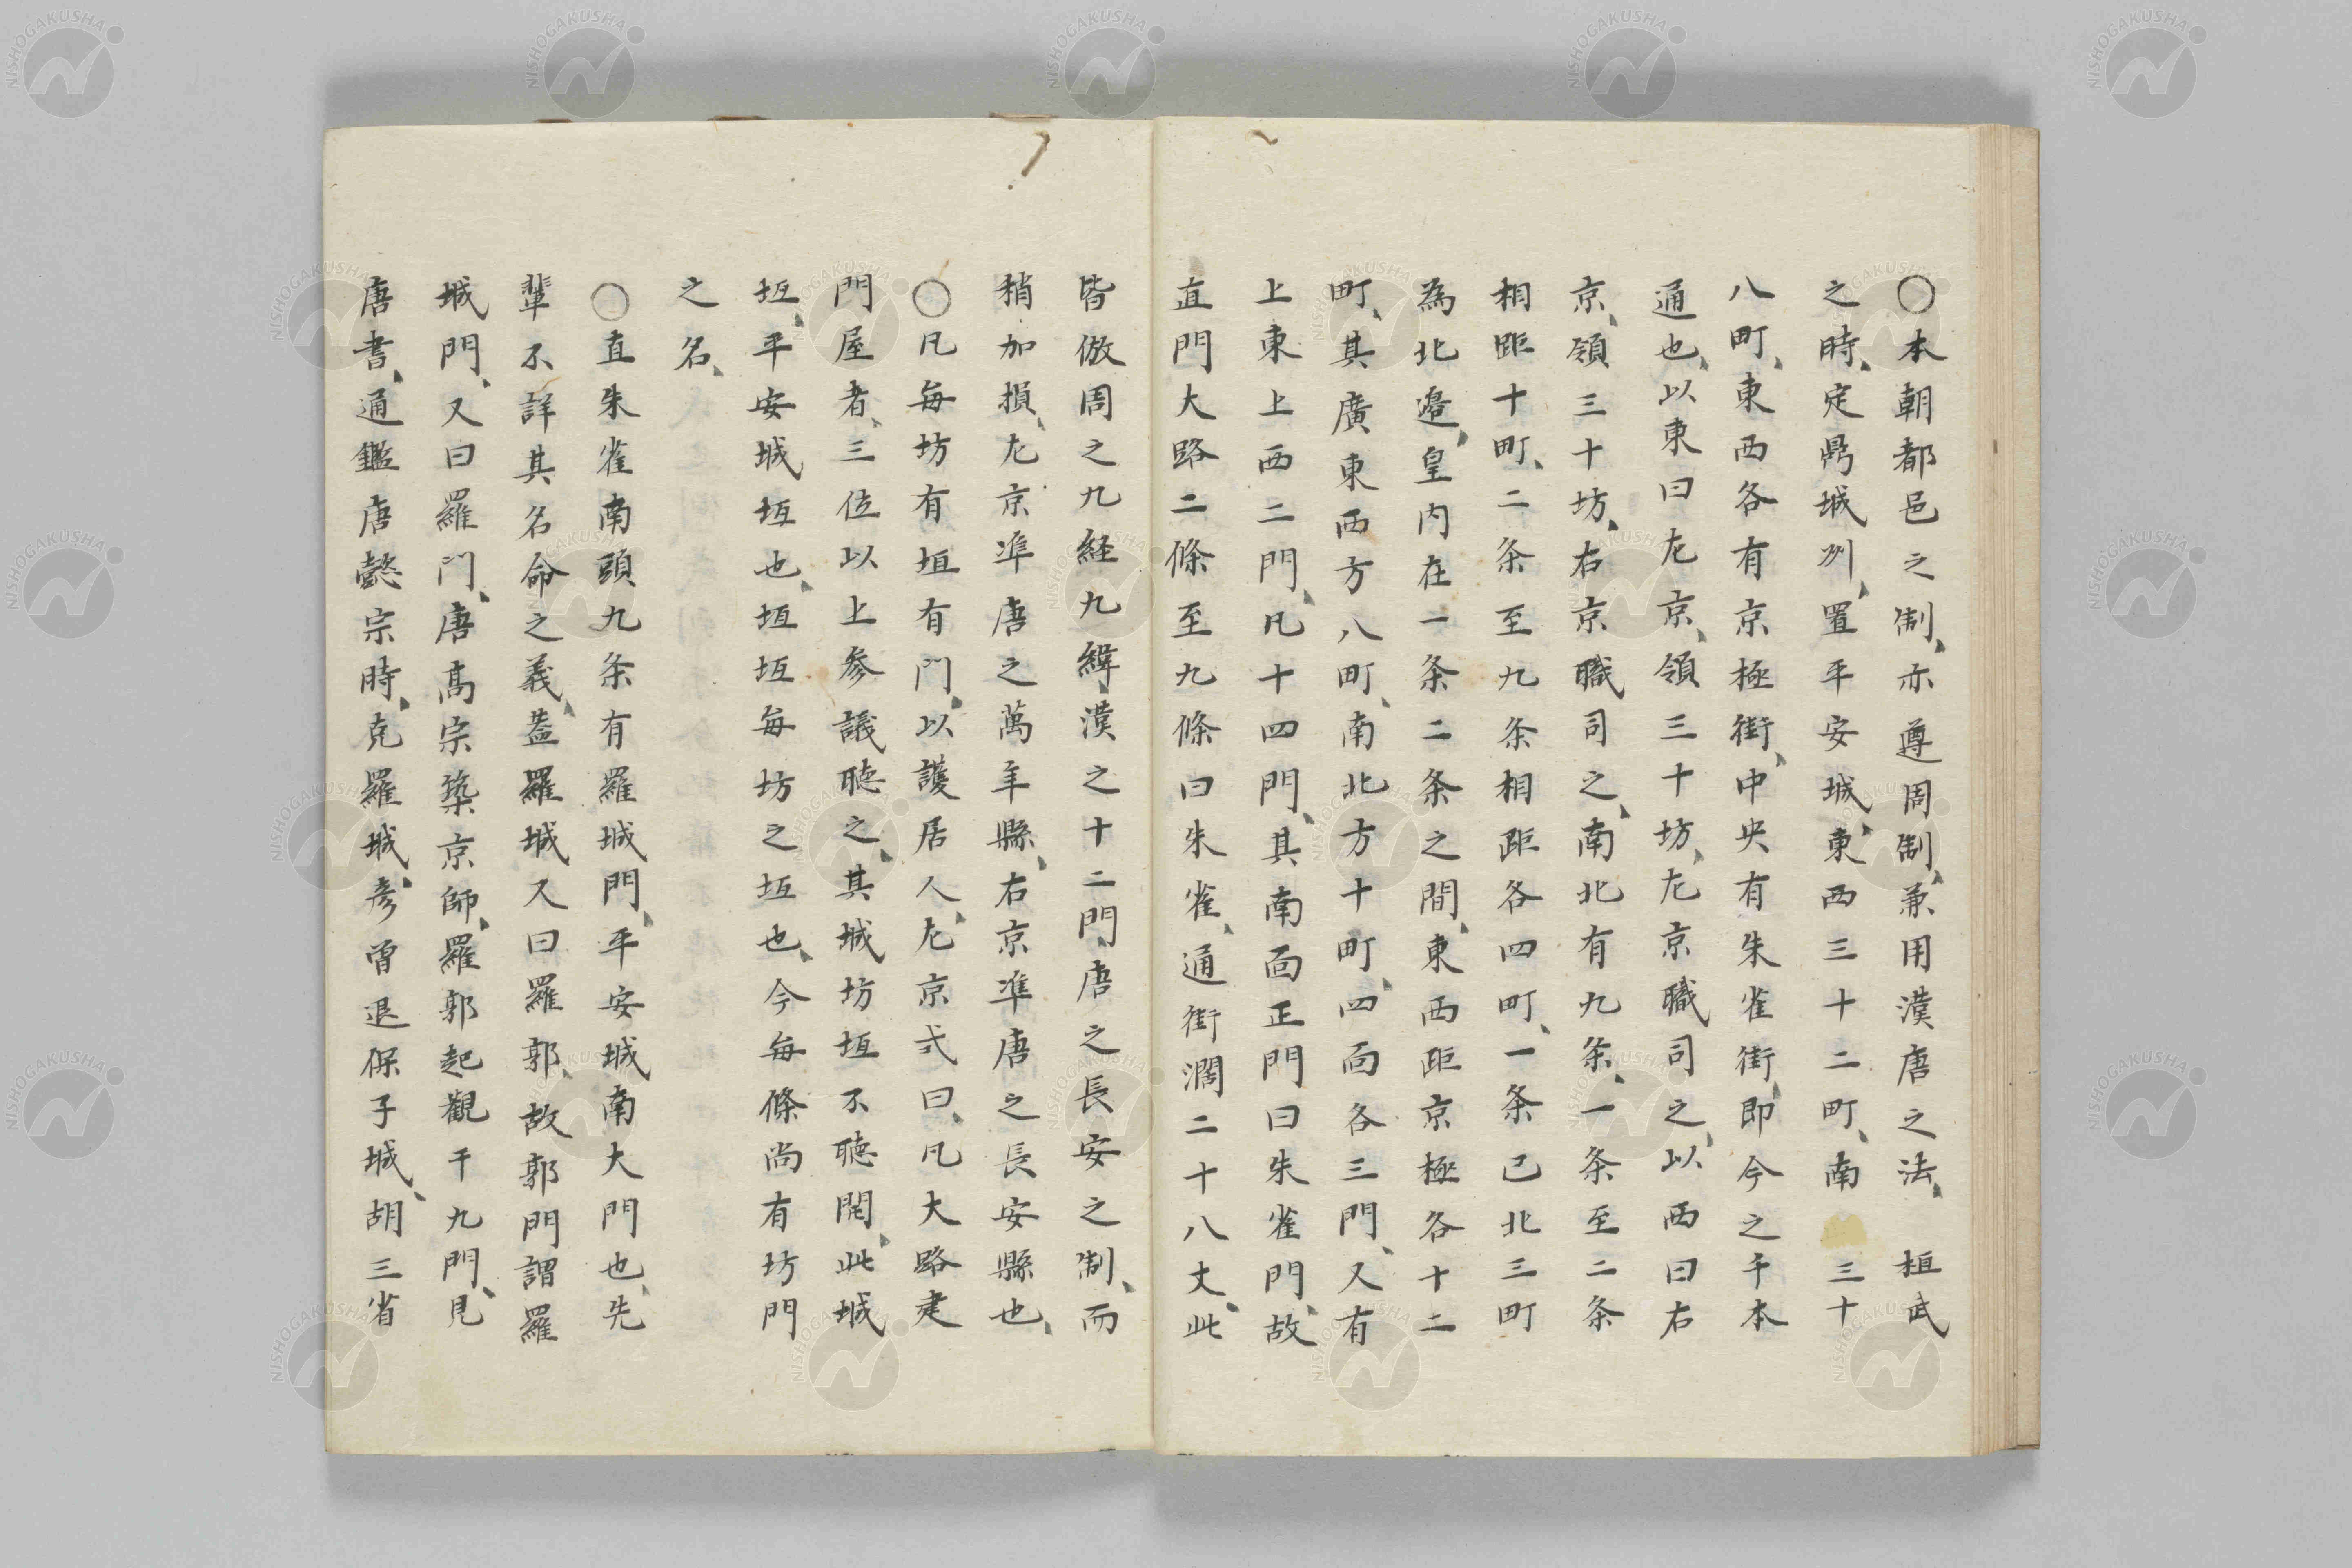 〇本朝都邑之制、亦遵周制、兼用漢唐之法、　桓武
之時、定鼎城州、置平安城、東西三十二町、南　三十
八町、東西各有京極街、中央有朱雀街、即今之千本
通也、以東曰左京、領三十坊、左京職司之、以西曰右
京、領三十坊、右京職司之、南北有九条、一条至二条
相距十町、二条至九条相距各四町、一条已北三町
為北邉、皇内在一条二条之間、東西距京極各十二
町、其廣東西方八町、南北方十町、四面各三門、又有
上東上西二門、凡十四門、其南面正門曰朱雀門、故
直門大路二條至九條曰朱雀、通街濶二十八丈、此
皆倣周之九経九緯、漢之十二門、唐之長安之制、而
稍加損、左京準唐之萬年縣、右京準唐之長安縣也、
〇凡毎坊有垣有門、以護居人、左京式曰、凡大路建
門屋者、三位以上參議聴之、其城坊垣不聴開、此城
垣、平安城垣也、垣垣毎坊之垣也、今毎條尚有坊門
之名、
〇直朱雀南頭九条有羅城門、平安城南大門也、先
輩不詳其名命之義、蓋羅城又曰羅郭、故郭門謂羅
城門、又曰羅門、唐髙宗築京師、羅郭起觀于九門、見
唐書、通鑑唐懿宗時、克羅城、彦曽退保子城、胡三省